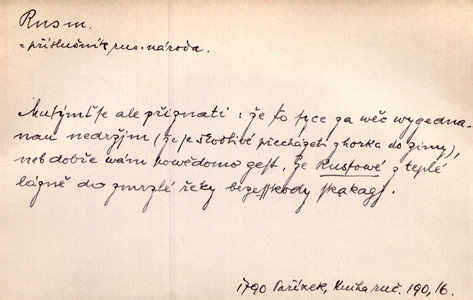 Rus m.
= příslušník rus. národa.
Musým se ale přiznati: že to syce za věc wygedna-
nau nedržjm (že je sskodliwé přecházeti z horka do zimy),
neb dobře wám powědomo gest, že Rusowé z teplé
lázně do zmrzlé řeky beze sskody skákagj.
1790 Pařízek, Kniha ruč. 190, 16.